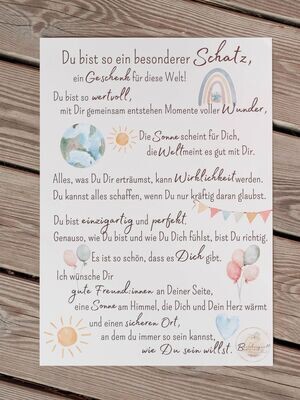 Du bist so ein besonderer Schatz,
ein Geschenk für diese Welt!
Du bist so wertvoll,
mit Dir gemeinsam entstehen Momente voller Wunder,
Die Sonne scheint für Dich,
die Welt meint es gut mit Dir.
Alles, was Du Dir erträumst, kann Wirklichkeit werden.
Du kannst alles schaffen, wenn Du nur kräftig daran glaubst.
Du bist einzigartig und perfekt.
Genauso, wie Du bist und wie Du Dich fühlst, bist Du richtig.
Es ist so schön, dass es Dich gibt.
Ich wünsche Dir
gute Freund:innen an Deiner Seite,
eine Sonne am Himmel, die Dich und Dein Herz wärmt
und einen sicheren Ort,
an dem du immer so sein kannst,
wie Du sein willst.